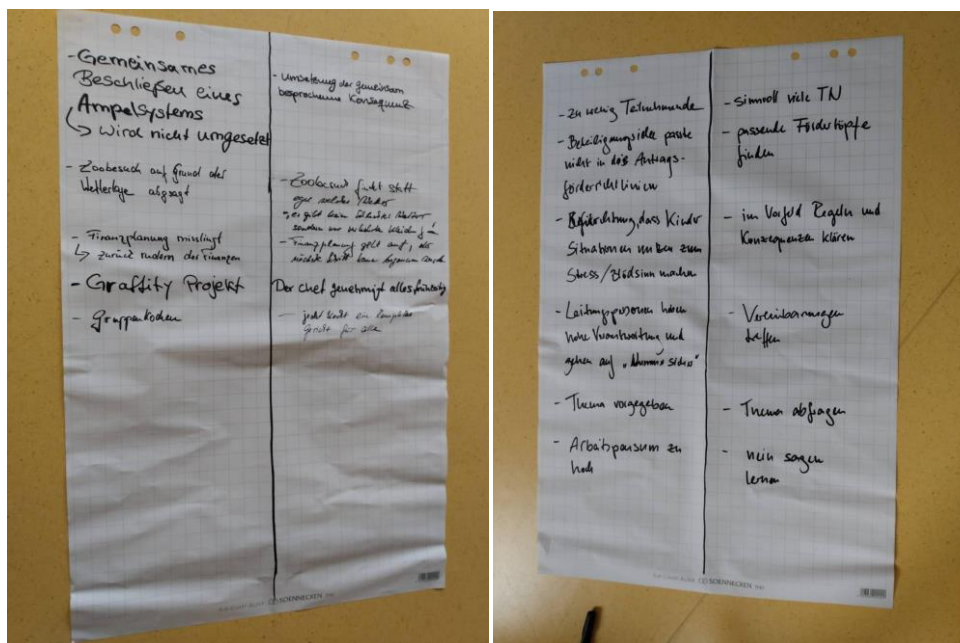 - Gemeinsames
Beschließen eines
Ampelsystems
↳ wird nicht umgesetzt
- Zoobesuch auf Grund der
Wetterlage abgesagt
- Finanzplanung misslingt
↳ zurück rudern der Finanzen
- Graffity Projekt
- Gruppenkochen
- Umsetzung der gemeinsam
besprochene Konsequenz
- Zoobesuch findet statt
egal welches Wetter
"es gibt kein schlechtes Wetter
sondern nur schlechte Kleidung"
- Finanzplanung geht auf, der
nächste Schritt kann
Der Chef genehmigt alles
- jede kocht ein
Gericht für alle
SOENNECKEN
- zu wenig Teilnehmende
- Beteiligungsidee passte
nicht in das Antrags-
förderrichtlinien
- Befürchtung, dass Kinder
Situationen nutzen zum
Stress/Blödsinn machen
- Leitungspersonen haben
hohe Verantwortung und
gehen auf „Nummer sicher"
- Thema vorgegeben
- Arbeitspensum zu
hoch
- sinnvoll viele TN
- passende Fördertöpfe
finden
- im Vorfeld Regeln und
Konsequenzen klären
- Vereinbarungen
treffen
- Thema abfragen
- nein sagen
lernen
SOENNECKEN